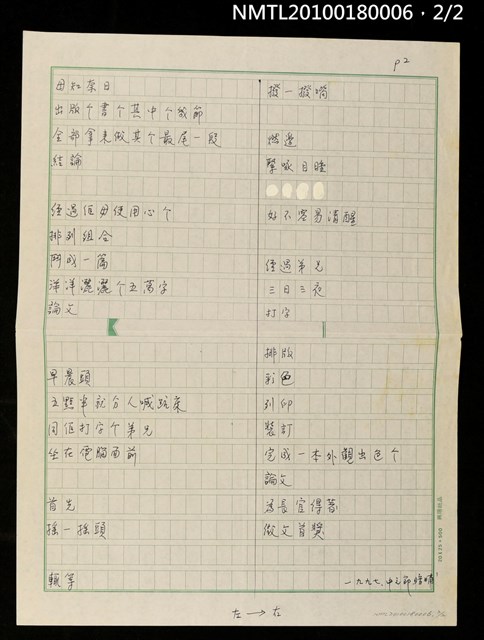 NMTL20100180006 · 2/2
P2
毋知奈日
出版个書个其中个幾節
全部拿來做其个最尾一段
結論
經過佢毋使用心个
排列組合
鬥成一篇
洋洋灑灑个五萬字
論文
早晨頭
五點半就分人喊䟘來
同佢打字个弟兄
坐在電腦面前
首先
搖一搖頭
輒等
撥一撥嘴
目睡
好不容易清醒
經過弟兄
三日三夜
打字
排版
彩色
列印
裝訂
完成一本外觀出色个
論文
為長官得著
做文首獎
一九九七、中元節
左→右